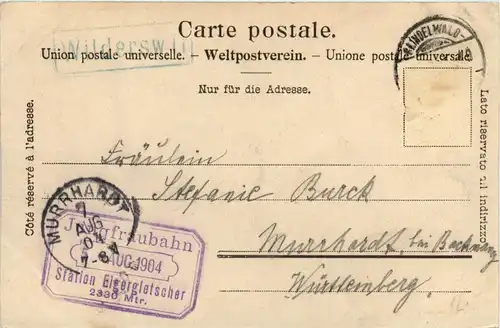 Carte postale.
Wilderswil
Union postale universelle. – Weltpostverein. – Unione postale universale.
Nur für die Adresse.
Côté réservé à l'adresse.
Lato riservato all indirizzo
GRINDELWALD
Fräulein
Stefanie Burck
Murrhardt, bei Backnang
Württemberg,
MURRHARDT
7
AUG
04
7-8 V
Jungfraubahn
AUG. 1904
Station Eigergletscher
2330 Mtr.